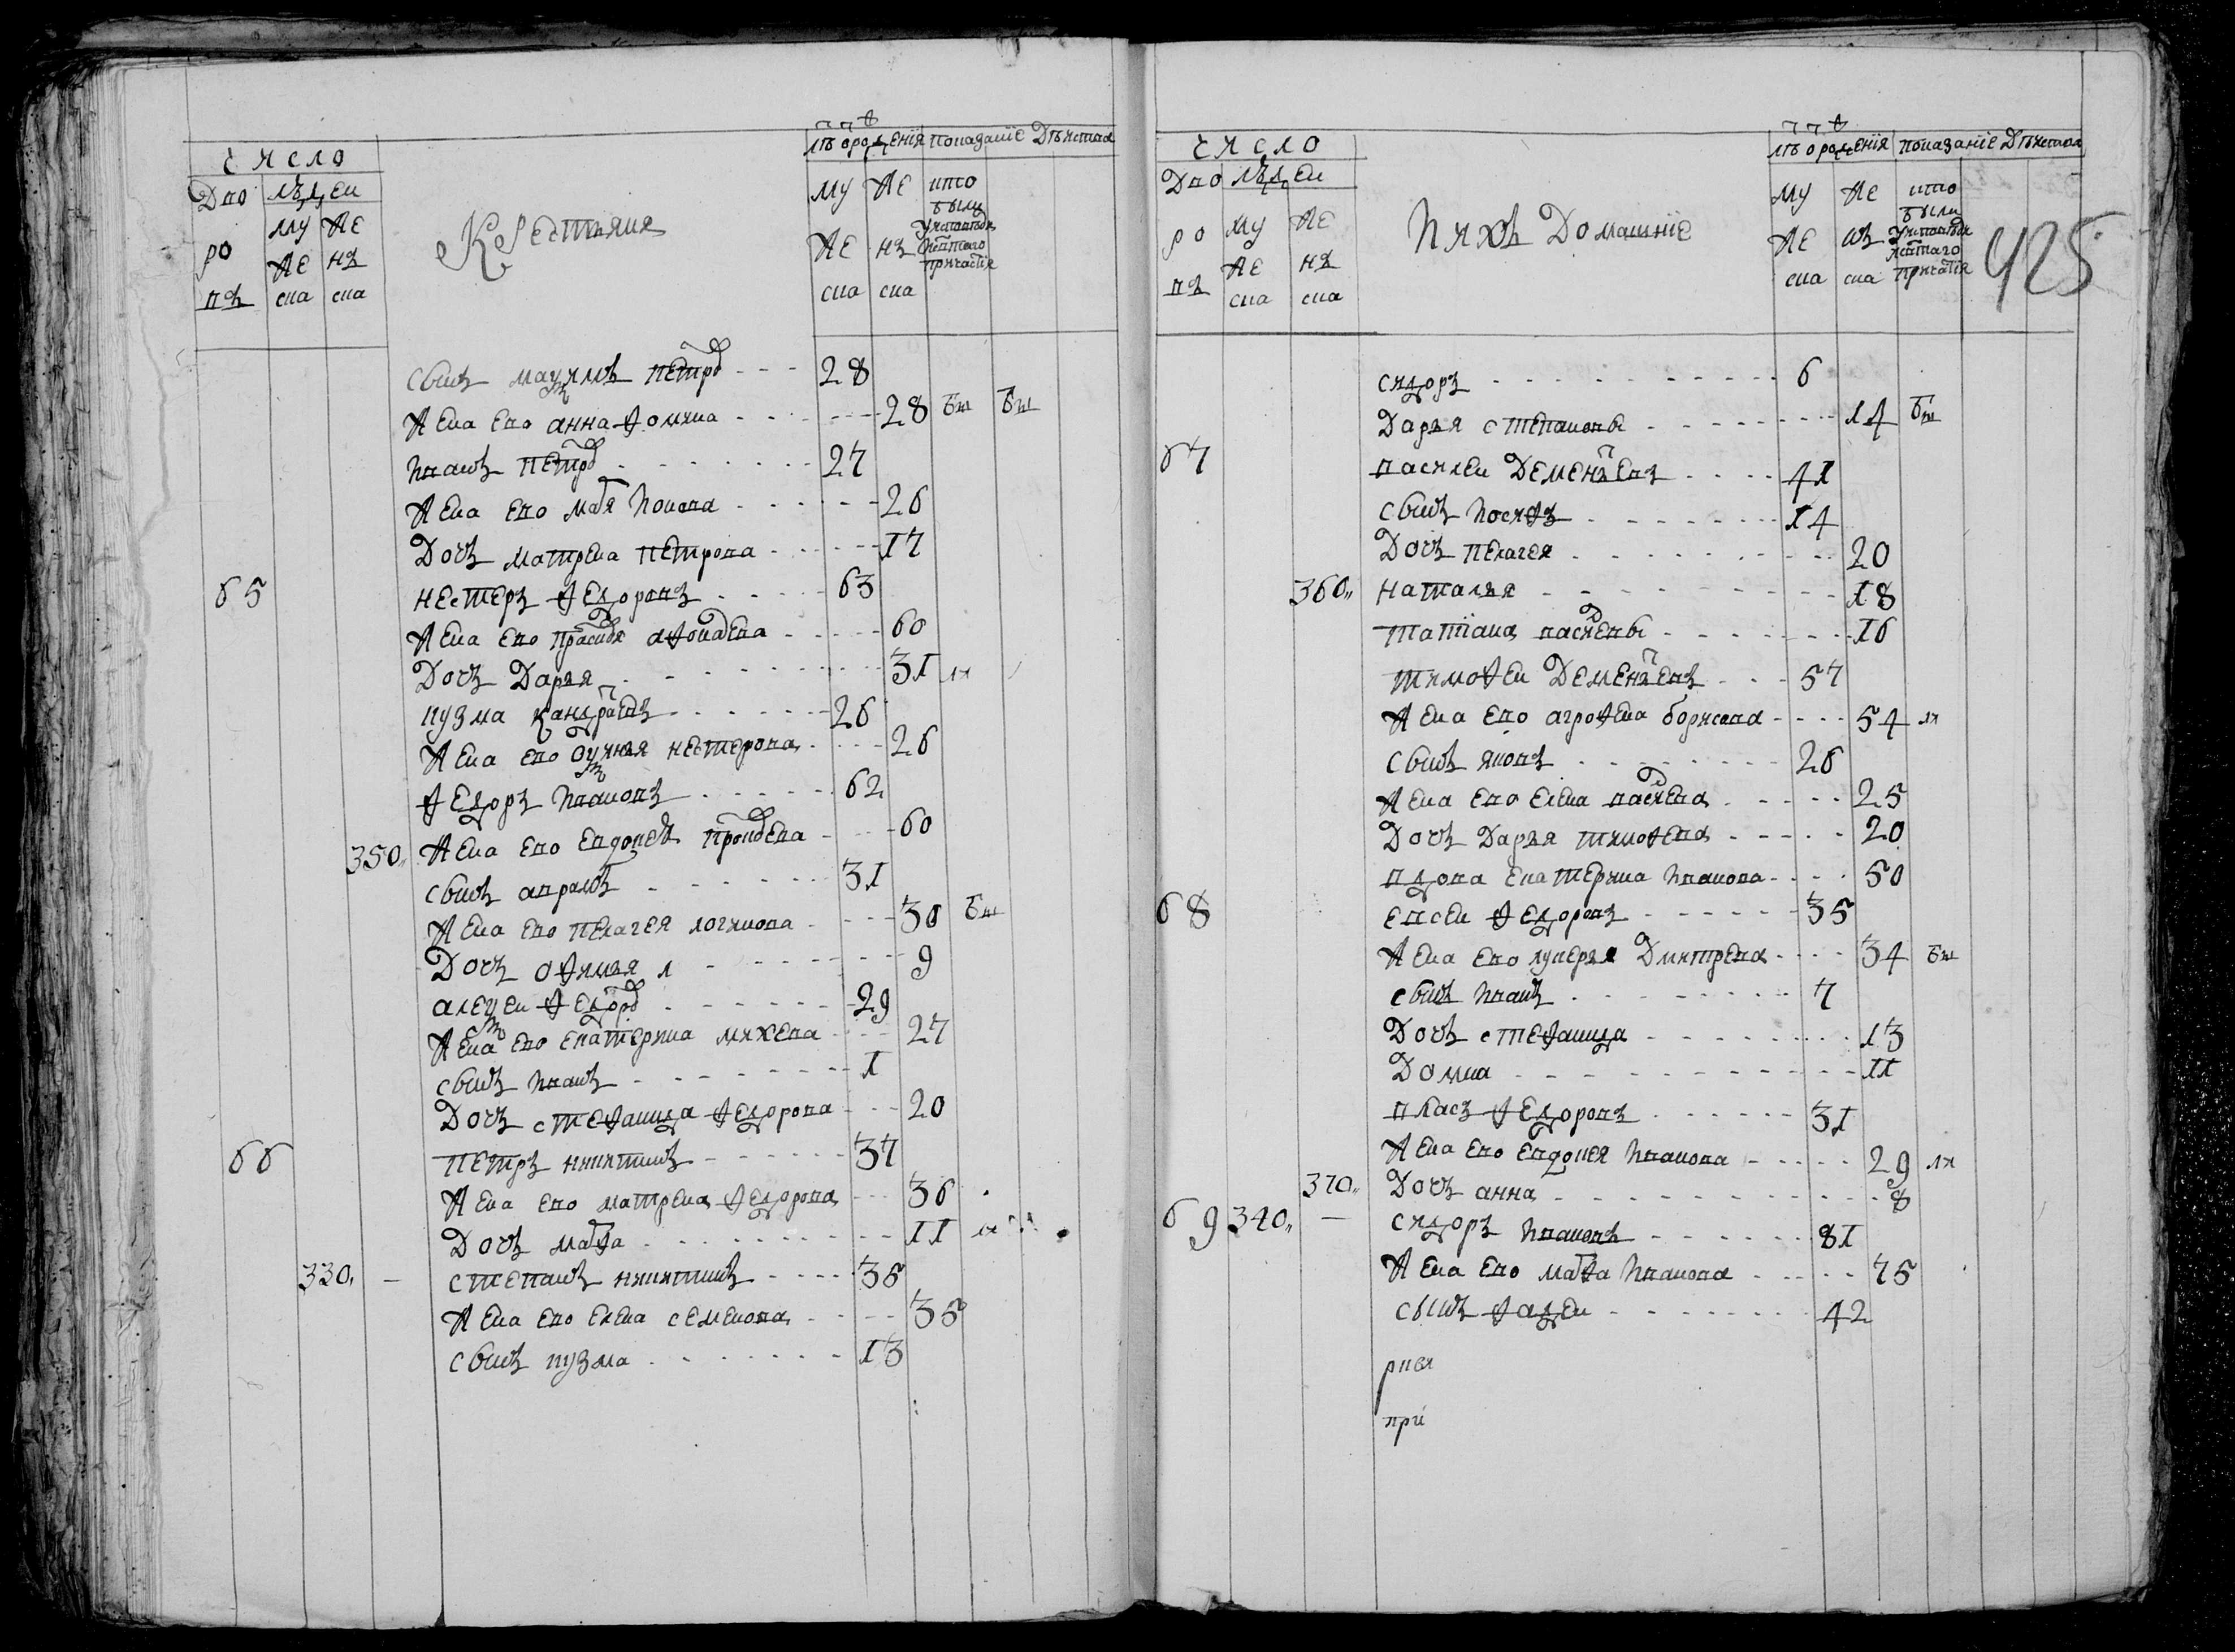 число
Дво
ров
людеи
му
же
ска
же
нъ
ска
Крестьяня
лѣт рожденiя
му
же
ска
же
нъ
ска
показанiе дѣиства
кто были у исповеди и святаго причастiя
сынъ маѯимъ петров 28
жена ево анна фомина 28 бы бы
иванъ петров 27
жена ево марья ионова 26
дочь матрена петрова 17
65 нестеръ федоровъ 63
жена ево прасковя афонасева 60
дочь Дарья 31 ли
кузма кандратевъ 26
жена ево нестерова 26
федоръ ивановъ 62
350 жена ево евдокея прокофева 60
сынъ аврамъ 31
жена ево пелагея логинова 30 бы
дочь офимья 9
алеѯеи федоров 29
жена ево екатерина михева 27
сынъ иванъ 1
дочь стефанида федорова 20
66 петръ никитинъ 37
жена ево матрена федорова 36
дочь марфа 11
330 степанъ никитинъ 36
жена ево елена семенова 35
сынъ кузма 13
число
Дво
ров
людеи
му
же
ска
же
нъ
ска
И ихъ Домашнiе
лѣт рожденiя
му
же
ска
же
нъ
ска
показанiе дѣиства
кто были у исповеди и святаго причастiя
425
сидоръ 6
Дарья степановы 14 бы
67 василеи Дементьевъ 41
сынъ иосифъ 14
дочь пелагея 20
360 наталья 18
татiана васильевы 16
тимофеи Дементьевъ 57
жена ево агрофена борисова 54 ли
сынъ яковъ 26
жена ево елена васильева 25
дочь Дарья тимофева 20
вдова екатерина иванова 50
68 евсеи федоровъ 35
жена ево лукерья Дмитрева 34 бы
сынъ иванъ 7
дочь стефанида 13
Домна 11
власъ федоровъ 31
жена ево евдокея иванова 29 ли
370 дочь анна 8
69 340 сидоръ ивановъ 81
жена ево марфа иванова 75
сынъ фадеи 42